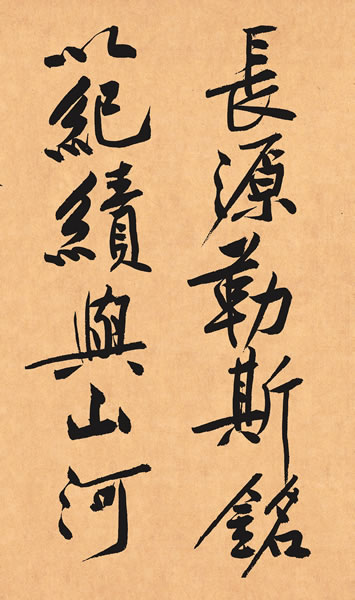 長源勒斯銘
以紀績與山河